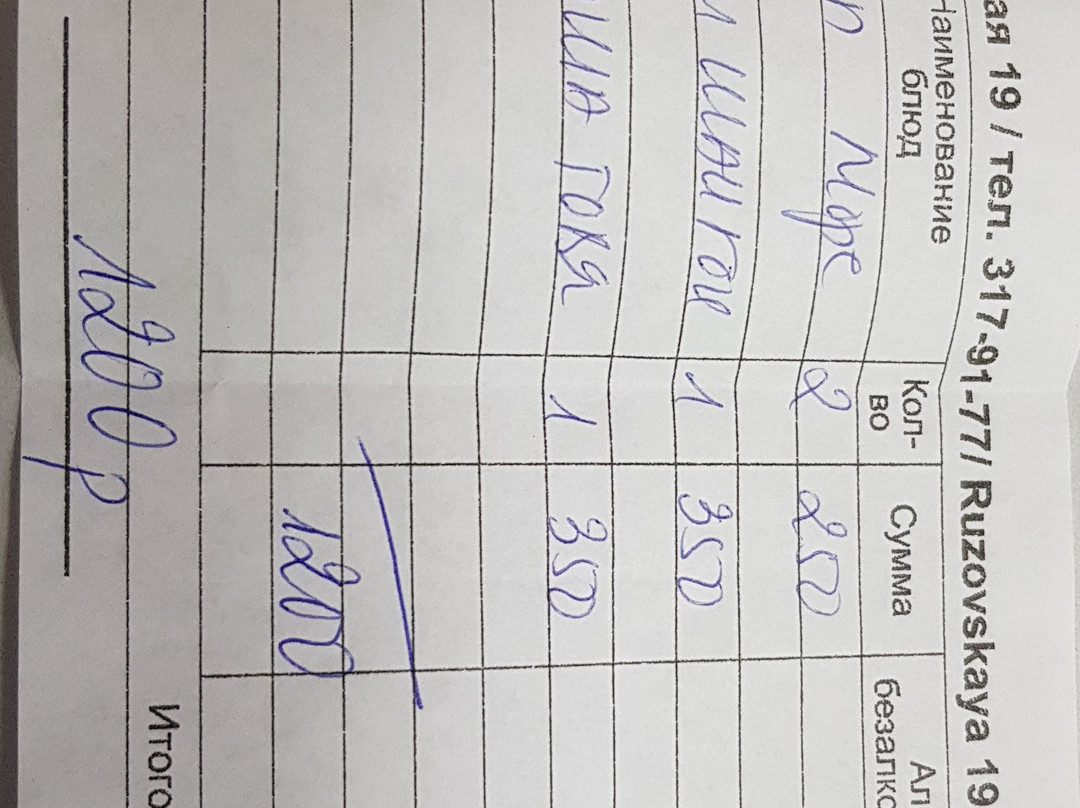 ая 19 / тел. 317-91-77/ Ruzovskaya 19
Наименование блюд Кол-во Сумма Ал безалко
п Морс 2 250
и шангои 1 350
ша гокя 1 350
1200
Итого
1200 р